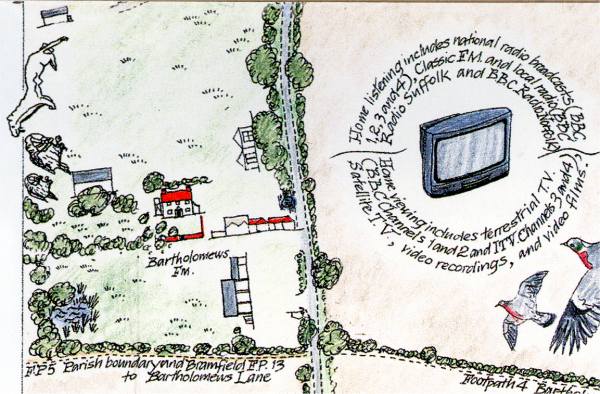 Home listening includes national radio broadcasts (BBC
1, 2, 3 and 4), Classic F.M. and local radio (BBC
Radio Suffolk and BBC Radio Norfolk)
Home viewing includes terrestrial T.V.
(BBC Channels 1 and 2 and ITV Channels 3 and 4)
Satellite T.V., video recordings, and video films.
Bartholomews
Fm.
F.P.5 Parish boundary and Bramfield F.P. 13
to Bartholomews Lane
Footpath 4 Barthol